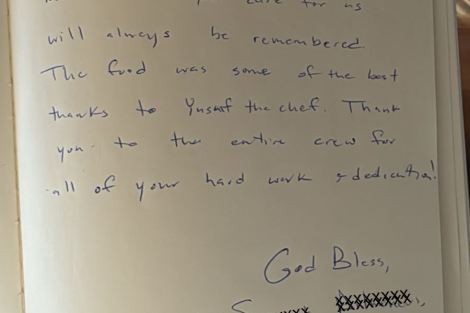 care for us
will always be remembered.
The food was some of the best
thanks to Yusuf the chef. Thank
you to the entire crew for
all of your hard work & dedication!
God Bless,